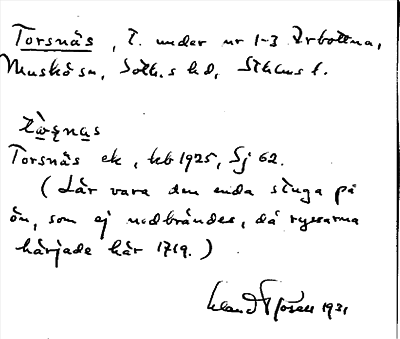 Torsnäs, t. under nr 1-3 Arbottna,
Muskö sn, Soth.s hd, Sthlms l.
Torsnäs ek, hb 1925, Sj 62.
(Lär vara den enda stuga på
ön, som ej nedbrändes, då ryssarna
härjade här 1719.)
1931